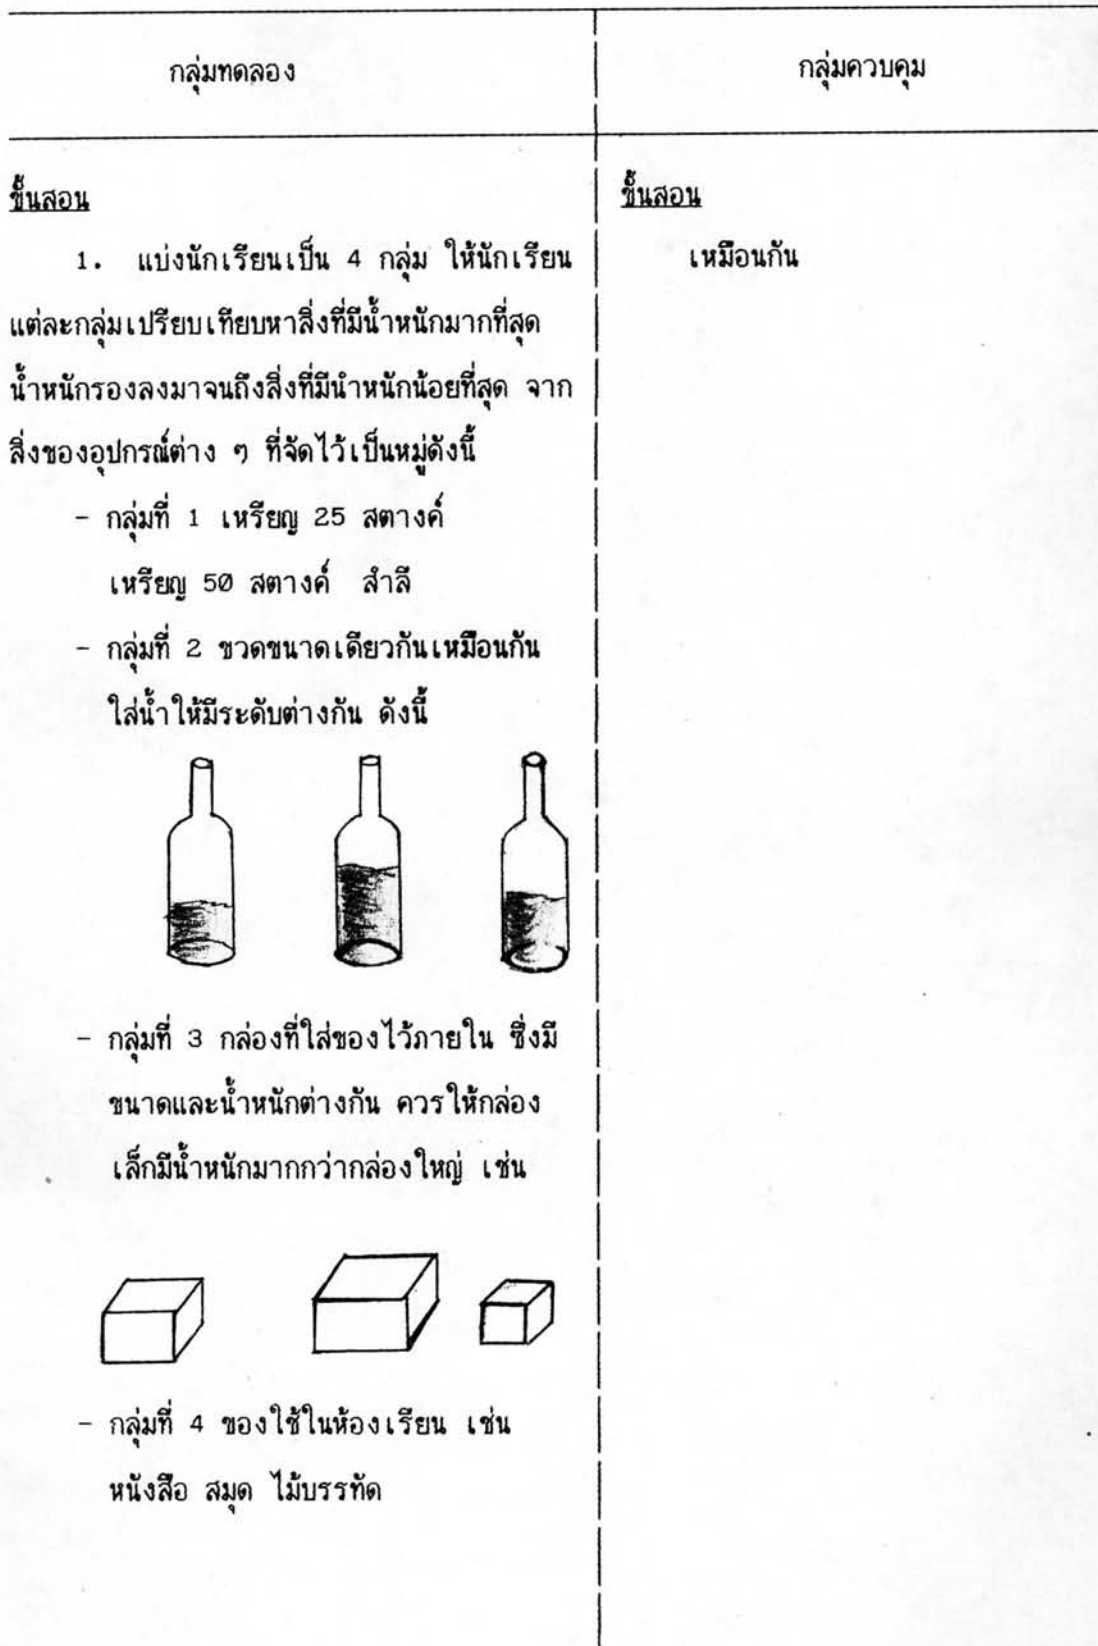 กลุ่มทดลอง
กลุ่มควบคุม
ขั้นสอน
1. แบ่งนักเรียนเป็น 4 กลุ่ม ให้นักเรียน
แต่ละกลุ่มเปรียบเทียบหาสิ่งที่มีน้ำหนักมากที่สุด
น้ำหนักรองลงมาจนถึงสิ่งที่มีนำหนักน้อยที่สุด จาก
สิ่งของอุปกรณ์ต่าง ๆ ที่จัดไว้เป็นหมู่ดังนี้
- กลุ่มที่ 1 เหรียญ 25 สตางค์
เหรียญ 50 สตางค์ สำลี
- กลุ่มที่ 2 ขวดขนาดเดียวกันเหมือนกัน
ใส่น้ำให้มีระดับต่างกัน ดังนี้
- กลุ่มที่ 3 กล่องที่ใส่ของไว้ภายใน ซึ่งมี
ขนาดและน้ำหนักต่างกัน ควรให้กล่อง
เล็กมีน้ำหนักมากกว่ากล่องใหญ่ เช่น
- กลุ่มที่ 4 ของใช้ในห้องเรียน เช่น
หนังสือ สมุด ไม้บรรทัด
ขั้นสอน
เหมือนกัน